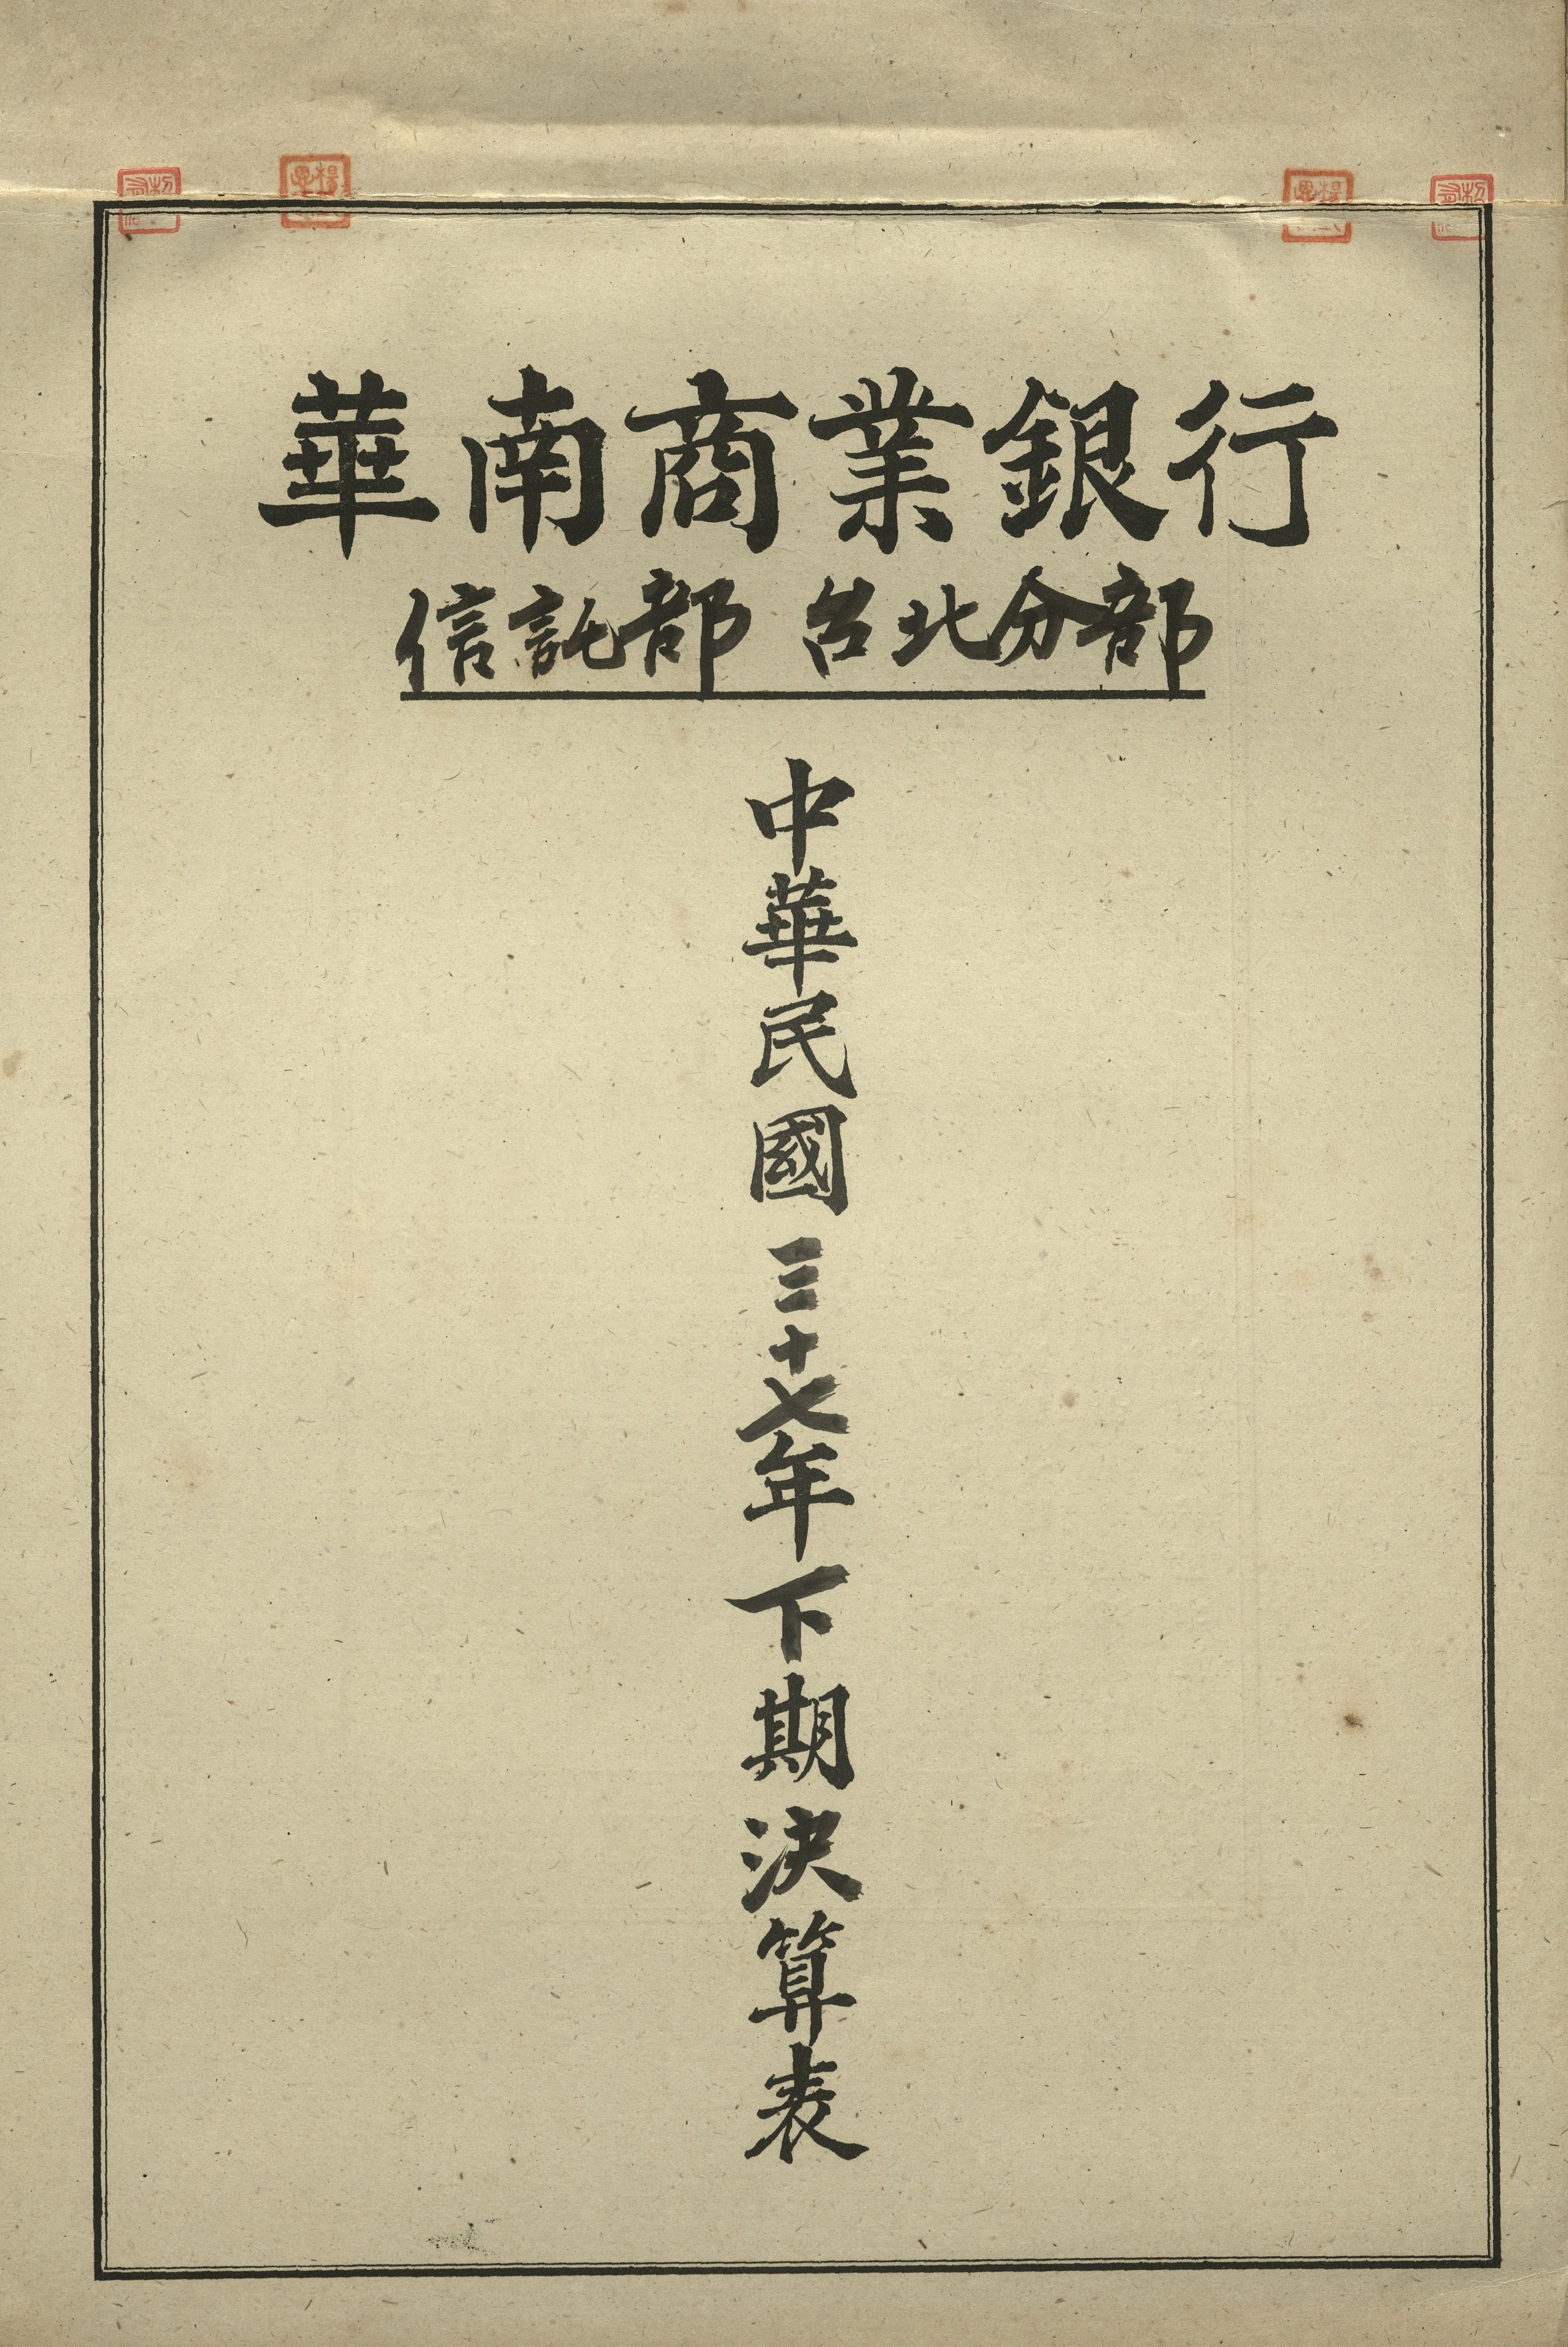 華南商業銀行
信託部 台北分部
中華民國三十七年下期決算表